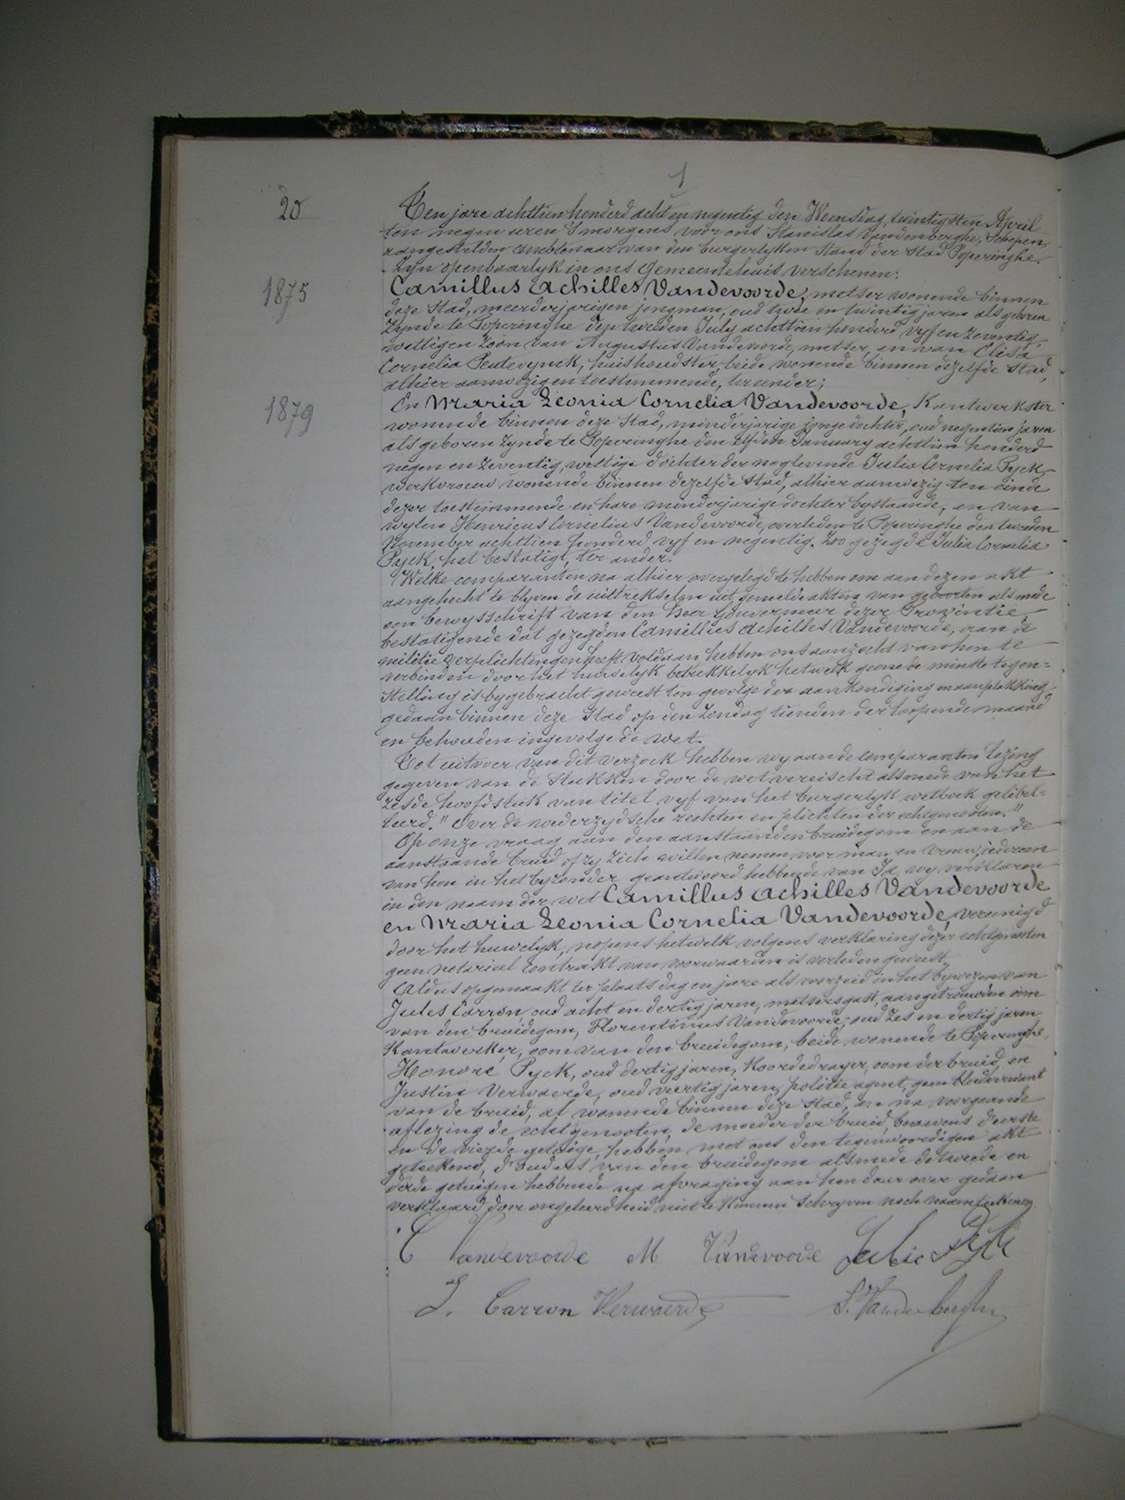 1
20
Ten jare achttien honderd acht en negentig den Woensdag, twintigsten April
ten negen uren 's morgens voor ons Stanislas Vandenberghe, Schepen,
aangestelden ambtenaar van den burgerlyken Stand der Stad Poperinghe
Zyn openbaarlyk in ons Gemeentehuis verschenen:
1875
Camillus Achilles Vandevoorde, metser wonende binnen
deze Stad, meerderjarigen jongman, oud twee en twintig jaren als geboren
zynde te Poperinghe den tweeden July achttien honderd vyf en zeventig,
wettigen zoon van Augustus Vandevoorde, metser, en van Elisa
Cornelia Peutevynck, huishoudster, beide wonende binnen dezelfde Stad,
alhier aanwezig en toestemmende, ter eender;
1879
En Maria Leonia Cornelia Vandevoorde, Kantwerkster
wonende binnen deze Stad, minderjarige jonge dochter, oud negentien jaren
als geboren zynde te Poperinghe den elfden January achttien honderd
negen en zeventig, wettige dochter der nog levende Julia Cornelia Pyck,
werkvrouw wonende binnen dezelfde Stad, alhier aanwezig ten einde
dezer toestemmende en hare minderjarige dochter bystaande, en van
wylen Henricus Cornelius Vandevoorde, overleden te Poperinghe den tweeden
November achttien honderd vyf en negentig. Zoo gezegde Julia Cornelia
Pyck, het bestatigt, ter ander.
Welke comparanten na alhier overgelegd te hebben om aan dezen akt
aangehecht te blyven de uittrekselen uit gemelde akten van geboorten alsmede
een bewysschrift van den Heer Gouverneur dezer Provintie
bestatigende dat gezegden Camillus Achilles Vandevoorde, aan de
militie verplichtingen heeft voldaan hebben ons aanzocht van hen te
verbinden door het huwelyk betrekkelyk hetwelk geene de minste tegen=
stelling is bygebracht geweest ten gevolge der aankondiging en aanplakking
gedaan binnen deze Stad op den Zondag tienden der loopende maand
en behouden ingevolge de wet.
Tot uitvoer van dit verzoek hebben wy aan de comparanten lezing
gegeven van de Stukken door de wet vereischt alsmede van het
zesde hoofdstuk van titel vyf van het burgerlyk wetboek getitel=
leerd. "Over de wederzydsche rechten en plichten der echtgenooten."
Op onze vraag aan den aanstaanden bruidegom en aan de
aanstaande bruid of zy zich willen nemen voor man en vrouw, iedereen
van hen in het byzonder geantwoord hebbende van Ja, wy verklaren
in den naam der wet Camillus Achilles Vandevoorde
en Maria Leonia Cornelia Vandevoorde, vereenigd
door het huwelyk, nopens hetwelk volgens verklaring dezer echtgenooten
geen notarieel contrakt van voorwaarden is verleden geweest.
Aldus opgemaakt ter plaats dag en jare als voorzeid in het bywezen van
Jules Carron oud acht en dertig jaren, metsersgast, aangetrouwden oom
van den bruidegom, Florentinus Vandevoorde, oud zes en dertig jaren
Kantwerker, oom van den bruidegom, beide wonende te Poperinghe,
Honoré Pyck, oud dertig jaren, Koordedrayer, oom der bruid, en
Justin Verwaerde, oud veertig jaren, politie agent, geen bloedverwant
van de bruid, al wonende binnen deze Stad, en na voorgaande
aflezing de echtgenooten, de moeder der bruid, benevens d'eerste
en de vierde getuige, hebben met ons den tegenwoordigen akt
geteekend, d'ouders van den bruidegom alsmede de tweede en
derde getuigen hebbende na afvraging aan hen daar over gedaan
verklaard door ongeleerdheid niet te kunnen schryven noch naamteekenen
C Vandevoorde M Vandevoorde Julie Pyck
J. Carron Verwaerde S. Vandenberghe